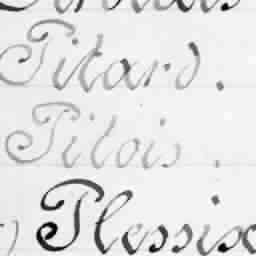 Pitard.
Pitois.
Plessix